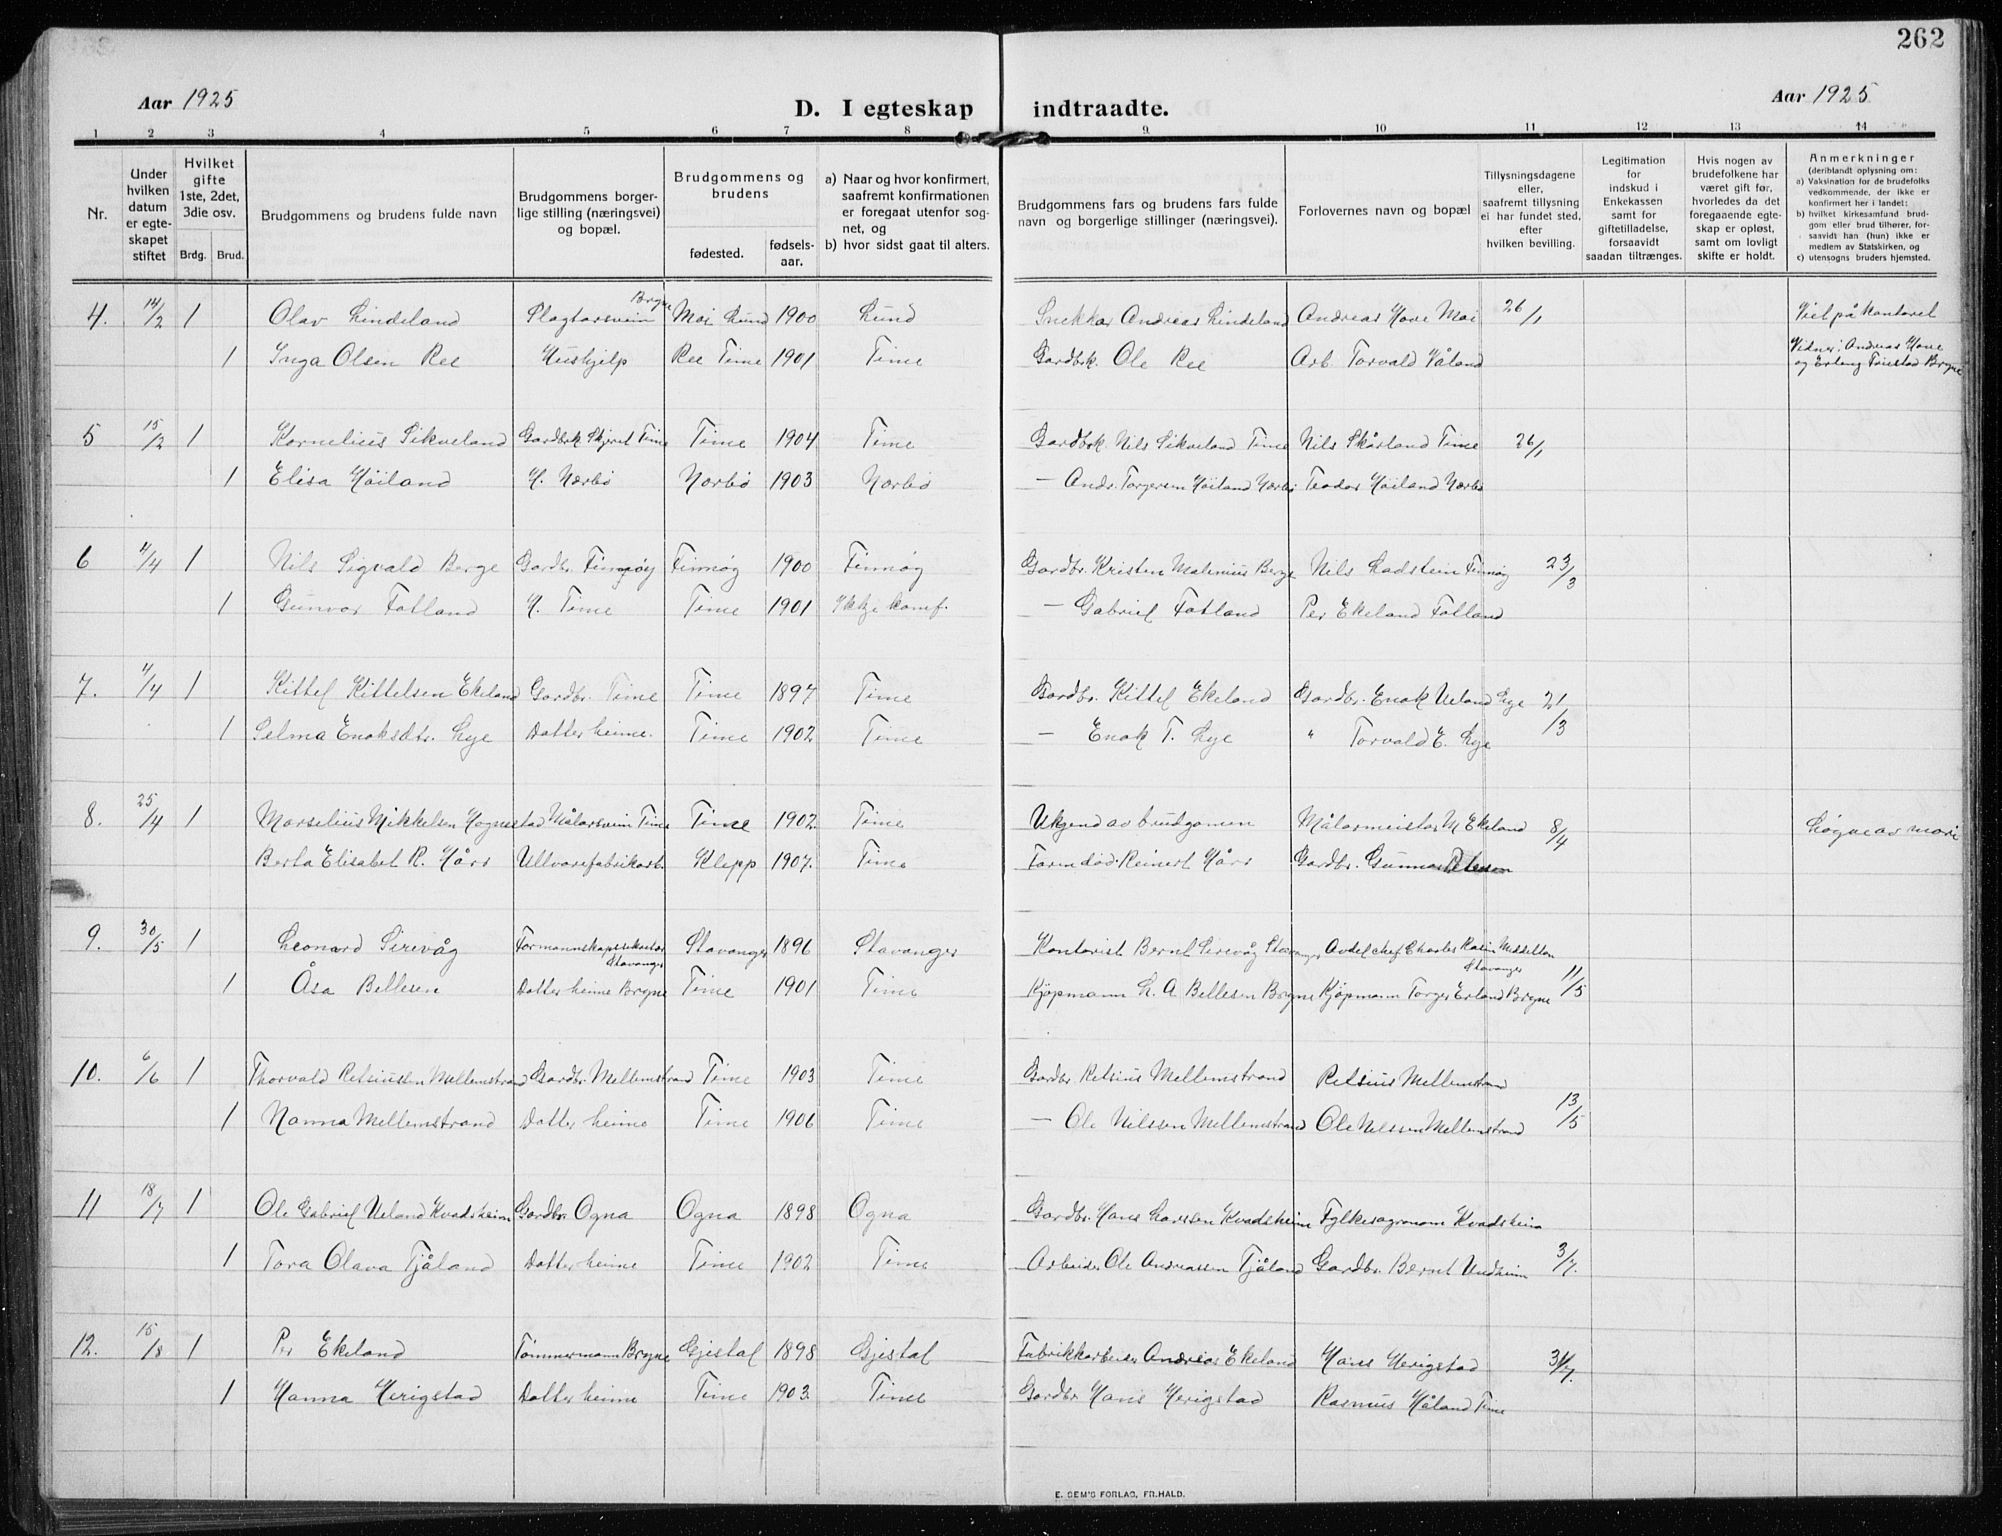 262
Aar 1925
D. I egteskap indtraadte.
Aar 1925
1 2 3 4 5 6 7 8 9. 10 11 12 13 14
Nr.
Under hvilken datum er egteskapet stiftet
Hvilket gifte 1ste, 2det, 3die osv.
Brdg. Brud.
Brudgommens og brudens fulde navn
Brudgommens borgerlige stilling (næringsvei) og bopæl.
Brudgommens og brudens
fødested. fødselsaar.
a) Naar og hvor konfirmert, saafremt konfirmationen er foregaat utenfor sognet, og
b) hvor sidst gaat til alters.
Brudgommens fars og brudens fars fulde navn og borgerlige stillinger (næringsvei).
Forlovernes navn og bopæl
Tillysningsdagene eller, saafremt tillysning ei har fundet sted, efter hvilken bevilling.
Legitimation for indskud i Enkekassen samt for giftetilladelse, forsaavidt saadan tiltrænges.
Hvis nogen av brudefolkene har været gift før, hvorledes da det foregaaende egteskap er opløst, samt om lovligt skifte er holdt.
Anmerkninger (deriblandt oplysning om:
a) Vaksination for de brudefolks vedkommende, der ikke er konfirmert her i landet:
b) hvilket kirkesamfund brudgom eller brud tilhører, forsaavidt han (hun) ikke er medlem av Statskirken, og
c) utensogns bruders hjemsted.
4. 14/2 1 Olav Lindeland Slagtarsvein Bryne Moi Lund 1900 Lund Snekkar Andreas Lindeland Andreas Hove Moi 26/1 Viet på kontoret
1 Inga Olsen Ree Hushjelp Ree Time 1901 Time Gardbrk. Ole Ree Arb. Torvald Våland Vidner: Andreas Hove og Erling Bryne
5 15/2 1 Kornelius Sikveland Gardbrk Skjeret Time Time 1904 Time Gardbrk. Nils Sikveland Time Nils Skårland Time 26/1
1 Elisa Høiland H. Nærbø Nærbø 1903 Nærbø — Andr. Torgersen Høiland Nærbø Teodor Høiland Nærbø
6 11/4 1 Nils Sigvald Berge Gardbr. Finnøy Finnøy 1900 Finnøy Gardbr. Kristen Malenius Berge Nils Ladstein Finnøy 23/3
1 Gunvor Fotland H. Time Time 1901 Ikkje konf. — Gabriel Fotland Per Ekeland Fotland
7. 11/4 1 Kittel Kittelsen Ekeland Gardbr. Time Time 1897 Time Gardbr. Kittel Ekeland Gardbr. Enok Ueland Lye 21/3
1 Selma Enoksdtr. Lye Datter heime. Time 1902 Time — Enok T. Lye " Torvald E. Lye
8. 25/4 1 Marselius Mikkelsen Hognestad Målarsvein Time Time 1902. Time Ukjend av brudgomen Målarmeistar M Ekeland 8/4 Løgne av mori
Berta Elisabet R. Hårr Ullvarefabrikarb. Klepp 1907. Time Faren død. Reinert Hårr Gardbr. Gunnar
9. 30/5 1 Leonard Sirevåg Formannskapssekretær Stavanger Stavanger 1896 Stavanger Kontorist Bernt Sirevåg Stavanger Avdel.chef Charles Middelton Stavanger 11/5
1 Åsa Bellesen Datter heime Bryne Time 1901 Time Kjøpmann L. A Bellesen Bryne Kjøpmann Torger Erland Bryne
10. 6/6 1 Thorvald Retsiussen Mellemstrand Gardbr. Mellemstrand Time 1903 Time Gardbr. Retsius Mellemstrand Retsius Mellemstrand 13/5
1 Nanna Mellemstrand Datter heime Time 1906 Time — Ole Nilssen Mellemstrand Ole Nilssen Mellemstrand
11 18/7 1 Ole Gabriel Ueland Kvadsheim Gardbr. Ogna Ogna 1898 Ogna Gardbr. Hans Larssen Kvadsheim Fylkesagronom Kvadsheim
1 Tora Olava Tjåland Datter heime Time 1902 Time Arbeider Ole Andreassen Tjåland Gardbr. Bernt Undheim 3/7.
12. 15/8 1 Per Ekeland Tømmermann Bryne Gjestal 1898 Gjestal Fabrikkarbeider Andreas Ekeland Hans Herigstad 31/7.
1 Hanna Herigstad Datter heime Time 1903. Time Gardbr. Hans Herigstad Rasmus Håland Time
E. SEM'S FORLAG, FR.HALD.